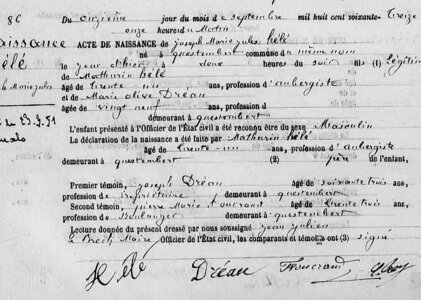 86 Du onzième jour du mois de septembre mil huit cent soixante-Treize
onze heures du Matin
Naissance ACTE DE NAISSANCE de Joseph Marie Jules Hélé
Hélé né à questembert commune du même nom
Marie Jules le jour d'hier à deux heures du soir fils (1) Légitime
de Mathurin Hélé
âgé de trente-un ans, profession d'aubergiste
et de Marie Olive Dréan
âgée de vingt neuf ans, profession d
demeurant à questembert
L'enfant présenté à l'Officier de l'État civil a été reconnu être du sexe Masculin
La déclaration de la naissance a été faite par Mathurin Hélé
âgé de trente-un ans, profession d'aubergiste
demeurant à questembert (2) père de l'enfant,
Premier témoin, Joseph Dréan âgé de soixante trois ans,
profession de propriétaire demeurant à questembert
Second témoin, pierre Marie Foucraut âgé de trente trois ans,
profession de Boulanger demeurant à questembert
Lecture donnée du présent dressé par nous soussigné Jean Julien
Le Brech, Maire Officier de l'État civil, les comparants et témoins ont (3) signé
Hélé Dréan Foucraut